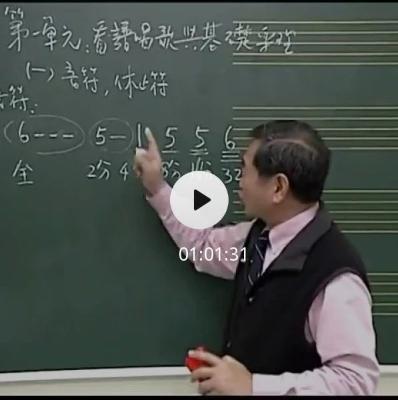 第一單元:看譜唱歌與基礎樂理
(一)音符,休止符
符:
(6--- 5- 1 5 5 6
全 2分 4 8分 16 32
01:01:31